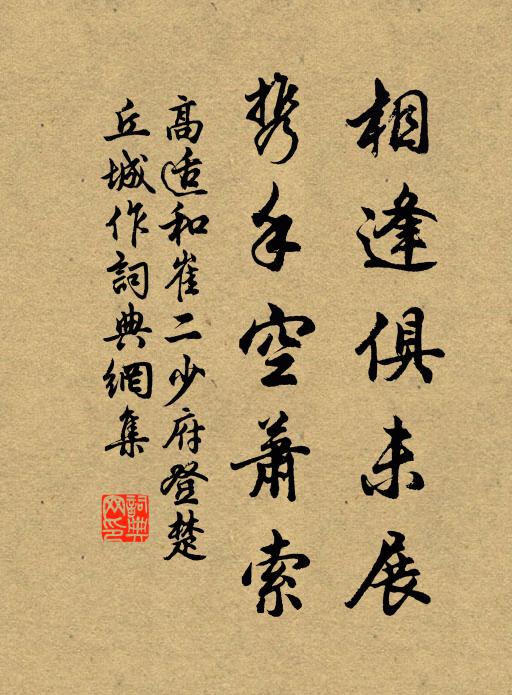 相逢俱未展
携手空蕭索
高适和崔二少府登楚
丘城作詞典網集
詞典
网印